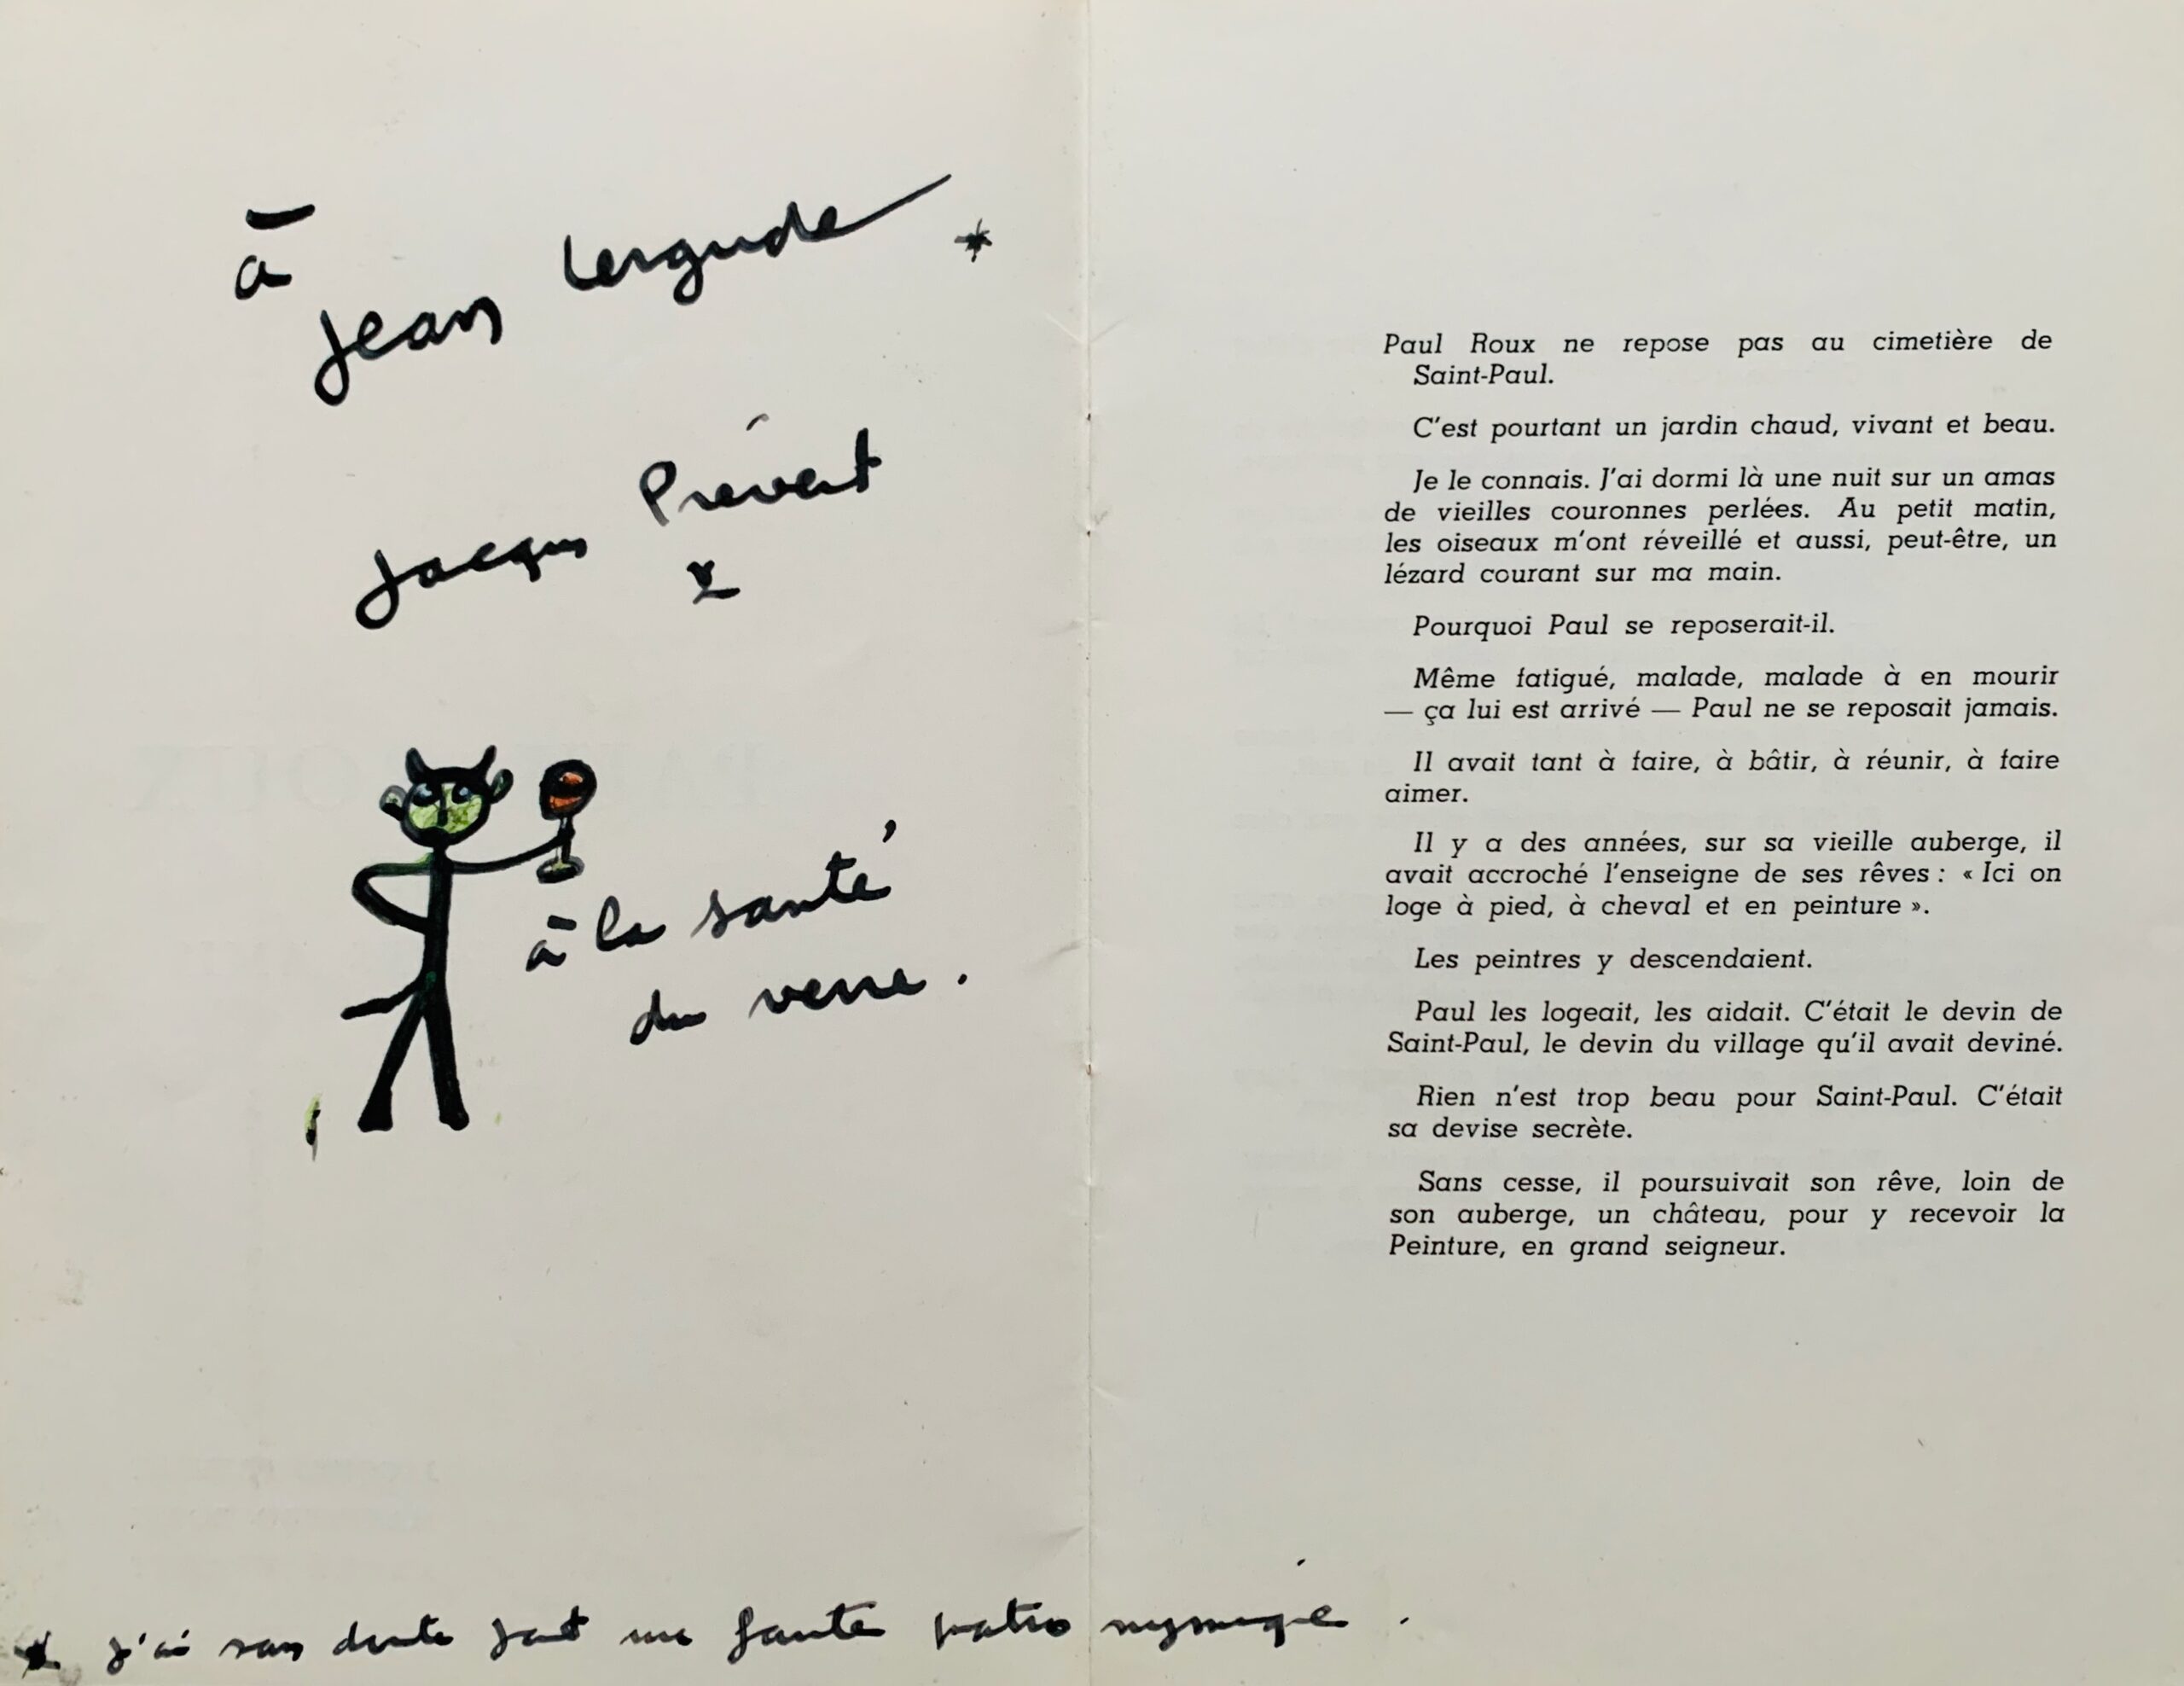 à
Jean Lergude *
Jacques Prévert
à la santé
du verre.
* j'ai sans doute fait une faute patronymique.
Paul Roux ne repose pas au cimetière de
Saint-Paul.
C'est pourtant un jardin chaud, vivant et beau.
Je le connais. J'ai dormi là une nuit sur un amas
de vieilles couronnes perlées. Au petit matin,
les oiseaux m'ont réveillé et aussi, peut-être, un
lézard courant sur ma main.
Pourquoi Paul se reposerait-il.
Même fatigué, malade, malade à en mourir
— ça lui est arrivé — Paul ne se reposait jamais.
Il avait tant à faire, à bâtir, à réunir, à faire
aimer.
Il y a des années, sur sa vieille auberge, il
avait accroché l'enseigne de ses rêves : « Ici on
loge à pied, à cheval et en peinture ».
Les peintres y descendaient.
Paul les logeait, les aidait. C'était le devin de
Saint-Paul, le devin du village qu'il avait deviné.
Rien n'est trop beau pour Saint-Paul. C'était
sa devise secrète.
Sans cesse, il poursuivait son rêve, loin de
son auberge, un château, pour y recevoir la
Peinture, en grand seigneur.